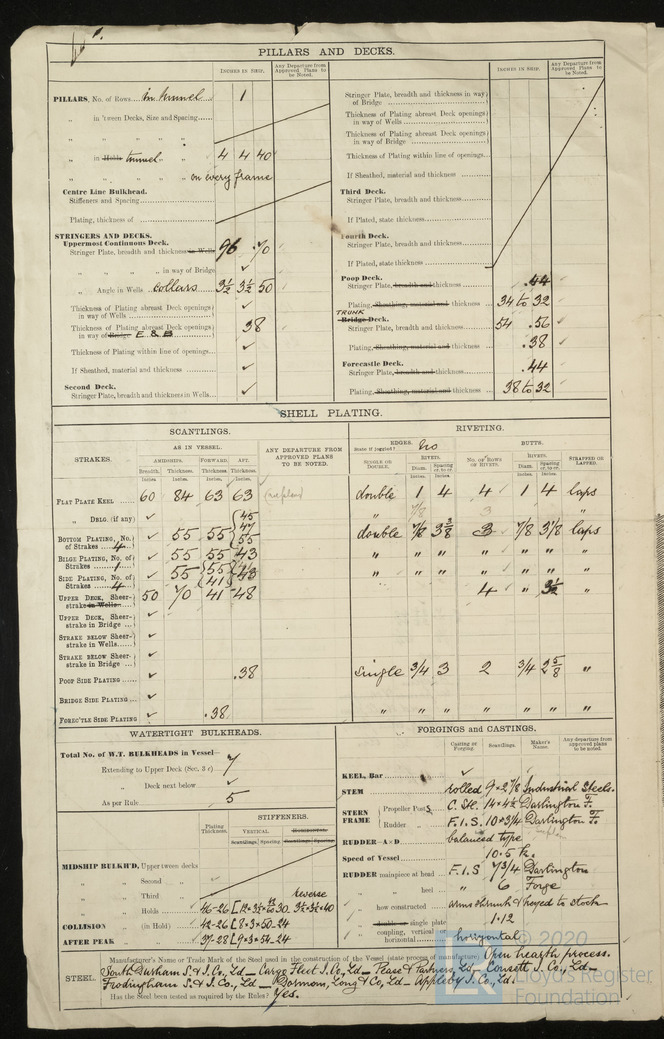 PILLARS AND DECKS.
INCHES IN SHIP.
Any Departure from Approved Plans to be Noted.
PILLARS, No. of Rows in tunnel 1
" in 'tween Decks, Size and Spacing
" " " "
" in Holds tunnel " 4 4 40
" " " on every frame
Centre Line Bulkhead.
Stiffeners and Spacing
Plating, thickness of
STRINGERS AND DECKS.
Uppermost Continuous Deck.
Stringer Plate, breadth and thickness in Wells 96 .70
" " " " in way of Bridge ✓
" Angle in Wells collars 3½ 3½ 50
Thickness of Plating abreast Deck openings in way of Wells ✓
Thickness of Plating abreast Deck openings in way of Bridge E & B .38
Thickness of Plating within line of openings ✓
If Sheathed, material and thickness ✓
Second Deck.
Stringer Plate, breadth and thickness in Wells ✓
INCHES IN SHIP.
Any Departure from Approved Plans to be Noted.
Stringer Plate, breadth and thickness in way of Bridge
Thickness of Plating abreast Deck openings in way of Wells
Thickness of Plating abreast Deck openings in way of Bridge
Thickness of Plating within line of openings
If Sheathed, material and thickness
Third Deck.
Stringer Plate, breadth and thickness
If Plated, state thickness
Fourth Deck.
Stringer Plate, breadth and thickness
If Plated, state thickness
Poop Deck.
Stringer Plate, breadth and thickness .44
Plating, Sheathing, material and thickness 34 to 32
TRUNK
Bridge Deck.
Stringer Plate, breadth and thickness 54 .56
Plating, Sheathing, material and thickness .38
Forecastle Deck.
Stringer Plate, breadth and thickness .44
Plating, Sheathing, material and thickness 38 to 32
SHELL PLATING.
SCANTLINGS.
RIVETING.
STRAKES.
AS IN VESSEL.
AMIDSHIPS. FORWARD. AFT.
Breadth. Thickness. Thickness. Thickness.
Inches Inches Inches Inches
ANY DEPARTURE FROM APPROVED PLANS TO BE NOTED.
EDGES. No
State if joggled?
SINGLE OR DOUBLE.
RIVETS.
Diam. Spacing cr. to cr.
BUTTS.
NO. OF ROWS OF RIVETS.
RIVETS.
Diam. Spacing cr. to cr.
STRAPPED OR LAPPED.
FLAT PLATE KEEL 60 84 63 63 double 1 4 4 1 4 laps
" DBLG. (if any) ✓ " 7/8 3 "
BOTTOM PLATING, No. of Strakes 4 ✓ 55 55 45 47 55 double 7/8 3 3/8 3 7/8 3 1/8 laps
BILGE PLATING, No. of Strakes 1 ✓ 55 55 43 " " " " " " "
SIDE PLATING, No. of Strakes 4 ✓ 55 55 41 43 " " " " " " "
UPPER DECK, Sheerstrake in Wells 50 70 41 48 4 " 3½ "
UPPER DECK, Sheerstrake in Bridge ✓
STRAKE BELOW Sheerstrake in Wells ✓
STRAKE BELOW Sheerstrake in Bridge ✓
POOP SIDE PLATING ✓ .38 single 3/4 3 2 3/4 2 5/8 "
BRIDGE SIDE PLATING ✓
FOREC'TLE SIDE PLATING ✓ .38 " " " " " " "
WATERTIGHT BULKHEADS.
Total No. of W.T. BULKHEADS in Vessel 7
Extending to Upper Deck (Sec. 3 c)
" Deck next below ✓
As per Rule 5
Plating Thickness.
STIFFENERS.
VERTICAL HORIZONTAL
Scantlings. Spacing. Scantlings. Spacing.
MIDSHIP BULKH'D, Upper tween decks
" " Second "
" " Third " reverse
" " Holds 3½×3½×40
COLLISION (in Hold) 42-26 [8×3×50-24
AFTER PEAK 37-28 [9×3×54-24
FORGINGS and CASTINGS.
Casting or Forging.
Scantlings.
Maker's Name.
Any departure from approved plans to be noted.
KEEL, Bar ✓
STEM rolled 9×2 7/8 Industrial Steels.
STERN FRAME
Propeller Post C. Stl. 14×4½ Darlington F.
Rudder " F.I.S. 10×3/4 Darlington F.
RUDDER A×D balanced type
Speed of Vessel 10.5 k.
RUDDER mainpiece at head F.I.S 7 3/4 Darlington
" " heel " 6 Forge
" how constructed arms shrunk & keyed to stock
" double or single plate 1.12
" coupling, vertical horizontal horizontal
STEEL.
Manufacturer's Name or Trade Mark of the Steel used in the construction of the Vessel (state process of manufacture) Open hearth process.
South Durham S. & I. Co., Ld — Cargo Fleet I. Co., Ld — Pease & Partners, Ld — Consett I. Co., Ld —
Frodingham S. & I. Co., Ld — Dorman, Long & Co, Ld — Appleby I. Co., Ld.
Has the Steel been tested as required by the Rules? Yes.
© 2020
Lloyd's Register
Foundation